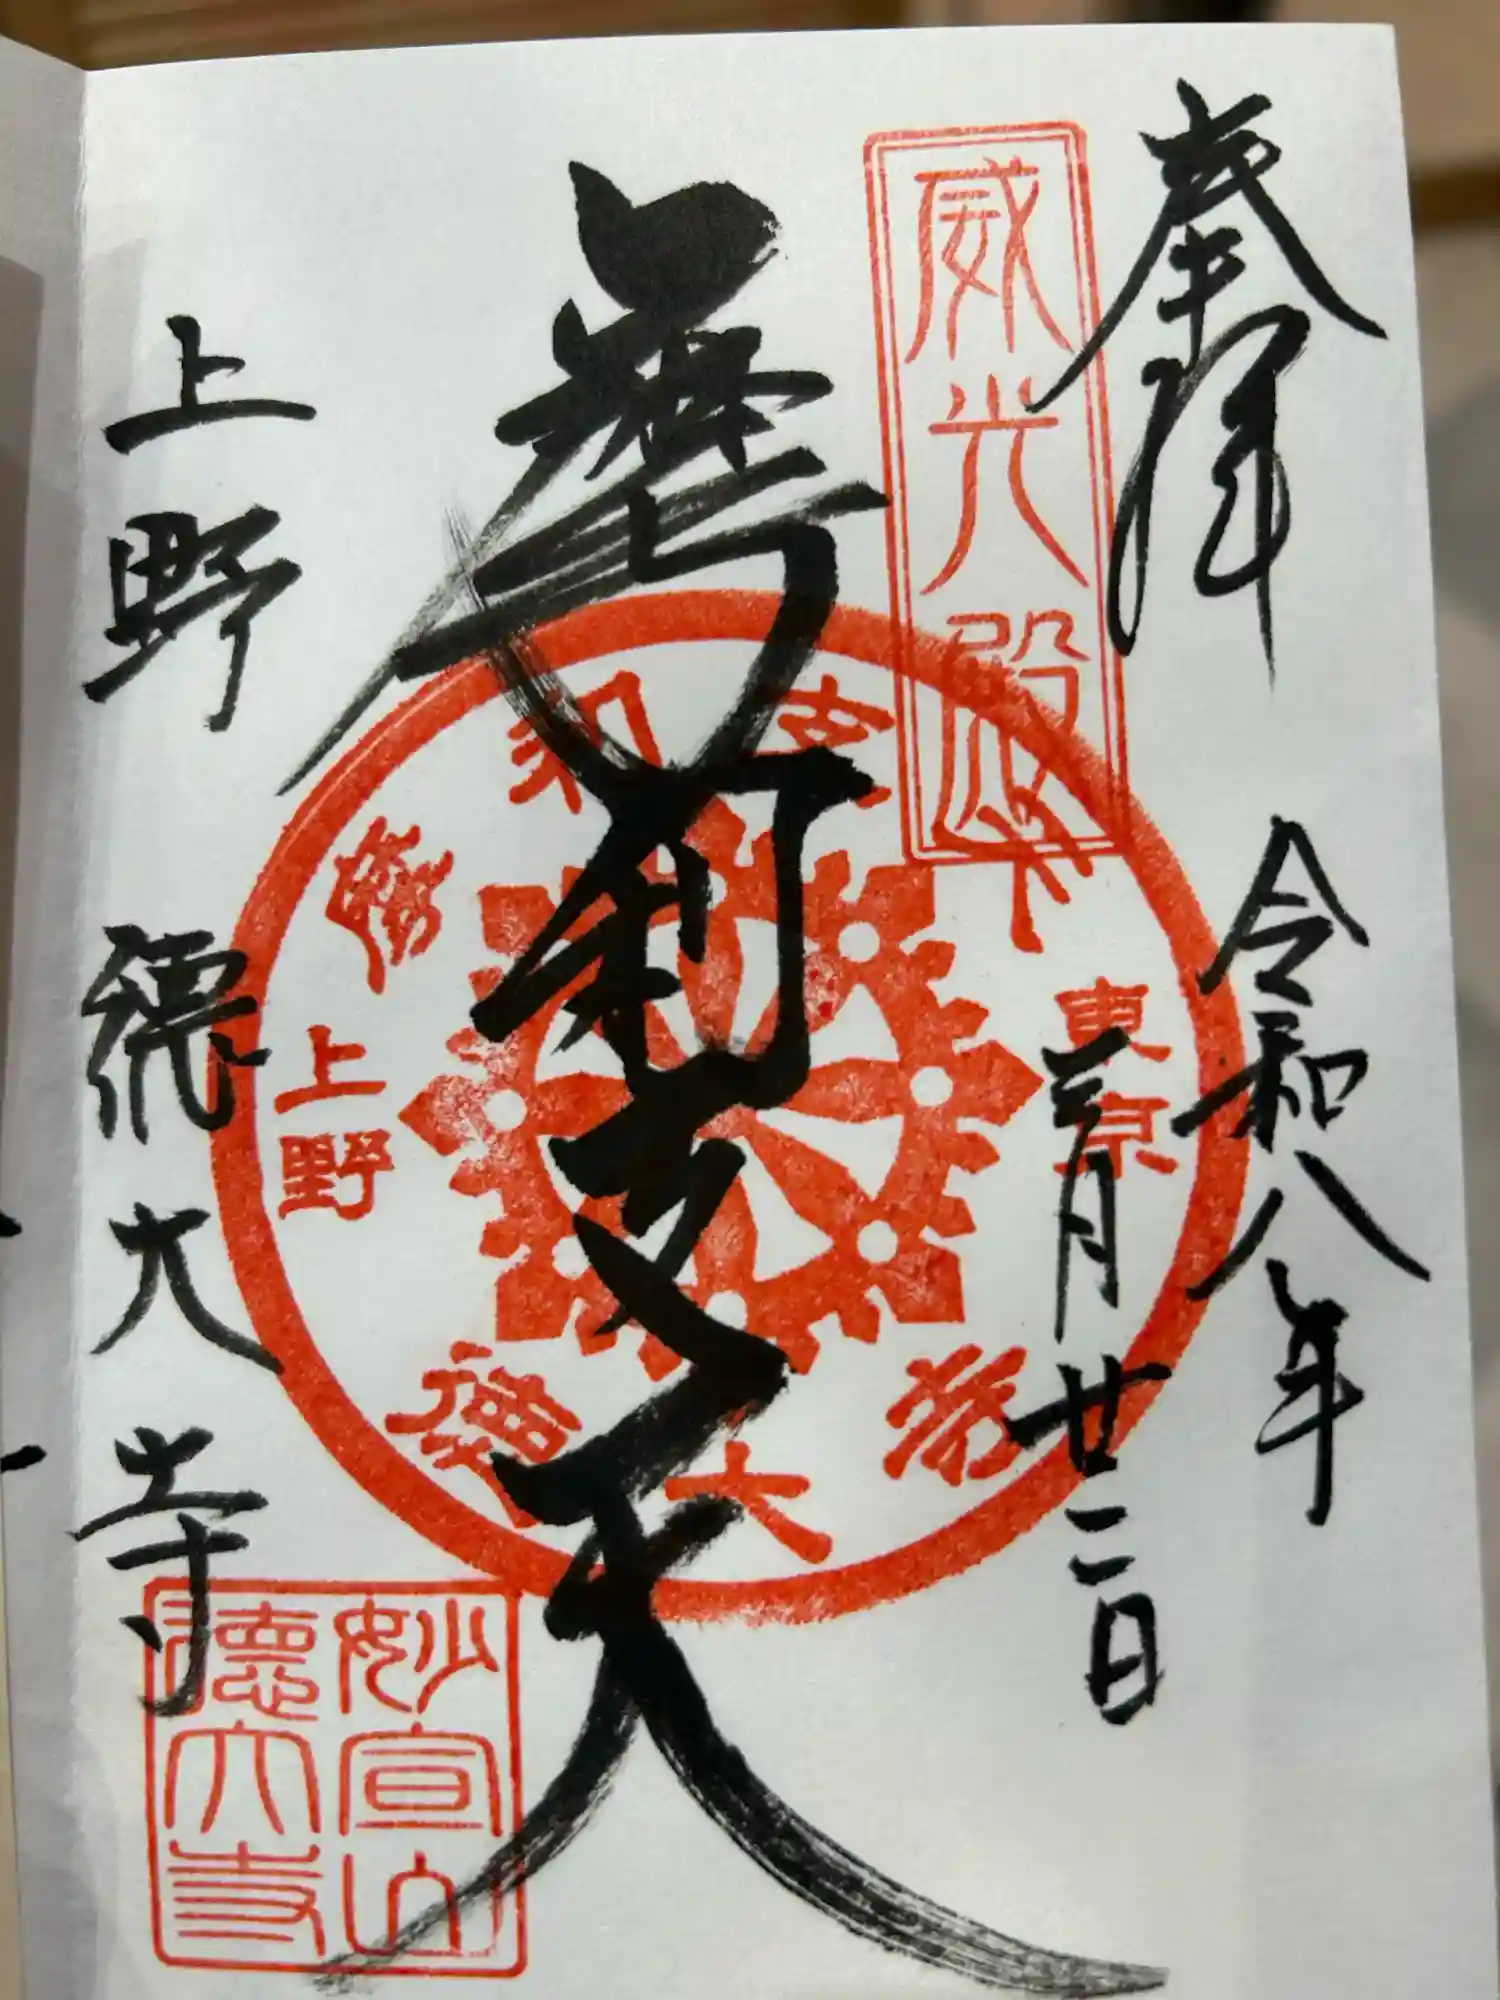 奉拝
令和八年
三月廿二日
威光殿
摩利支天
上野 徳大寺
東京
摩利支天
上野
徳大寺
妙宣山
徳大寺